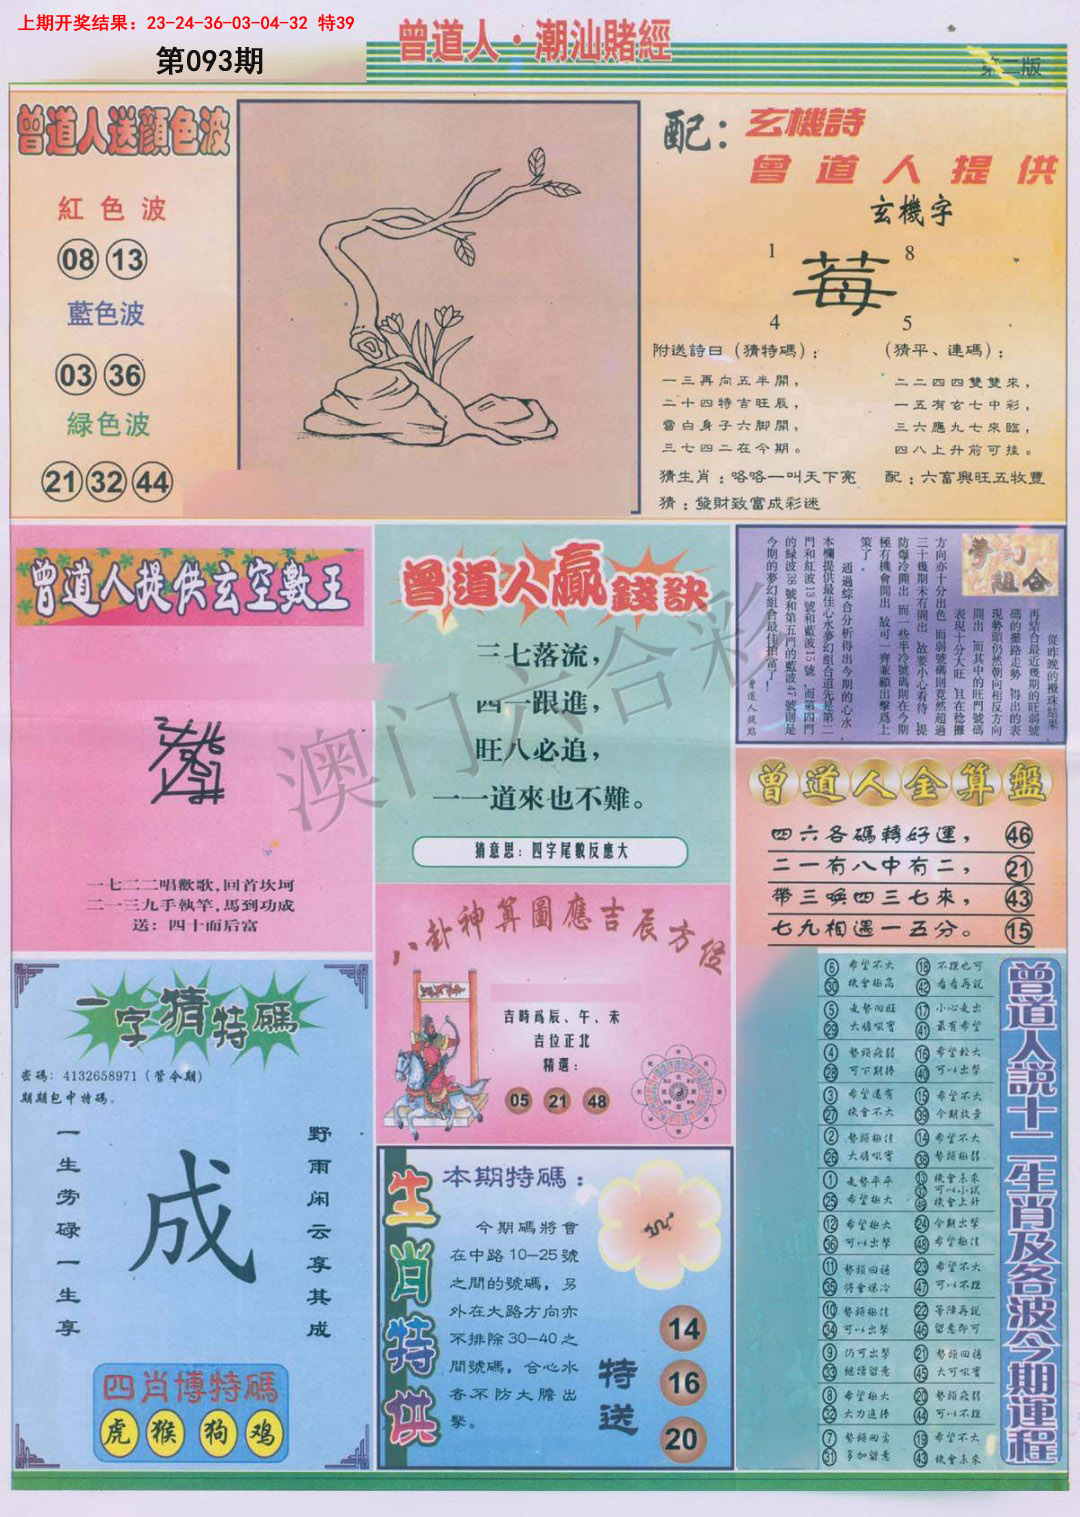 上期开奖结果：23-24-36-03-04-32 特39
第093期
曾道人·潮汕賭經
第二版
曾道人送顏色波
紅色波
08 13
藍色波
03 36
緑色波
21 32 44
配：
玄機詩
曾道人提供
玄機字
1 8
莓
4 5
附送詩曰（猜特碼）：
一三再向五半開，
二十四特吉旺辰，
當白身子六脚開，
三七四二在今期。
（猜平、連碼）：
二二四四雙雙來，
一五有玄七中彩，
三六應九七來臨，
四八上升前可挂。
猜生肖：咯咯一叫天下亮
配：六畜興旺五牧豐
猜：發財致富成彩迷
曾道人提供玄空數王
一七二二唱歡歌,回首坎坷
二一三九手執竿,馬到功成
送：四十而后富
曾道人贏錢訣
三七落流，
四一跟進，
旺八必追，
一一道來也不難。
猜意思：四字尾數反應大
夢幻組合
從昨晚的攪珠結果，
再結合最近幾期的旺弱號
碼的攤路走勢，得出的表
現勢頭仍然朝向相反方向
開出，而其中的旺門號碼
表現十分大旺，且在稔攤
方向亦十分出色，而弱號碼則竟然超過
三十幾期未有開出，故要小心看待，提
防爆冷開出，而一些半冷號碼則在今期
極有機會開出，故可一齊兼顧出擊爲上
策了。
通過綜合分析得出今期的心水，
本欄提供最佳心水夢幻組合道先是第二
門和紅波13號和藍波15號，而第四門
的緑波38號和第五門的藍波47號則是
今期的夢幻組合最佳拍當了！
曾道人提爲
曾道人金算盤
四六各碼轉好運， 46
二一有八中有二， 21
帶三喚四三七來， 43
七九相遇一五分。 15
八卦神算圖應吉辰方位
吉時爲辰、午、未
吉位正北
精選：
05 21 48
一字猜特碼
密碼：4132658971（管今期）
期期包中特碼。
一生劳碌一生享
成
野雨闲云享其成
四肖博特碼
虎 猴 狗 鸡
生肖特供
本期特碼：
今期碼將會
在中路10—25號
之間的號碼，另
外在大路方向亦
不排除30—40之
間號碼，合心水
者不防大膽出
擊。
特送
14
16
20
曾道人説十二生肖及各波今期運程
6 希望不大
30 機會極高
18 不理也可
42 看看再説
5 走勢回旺
29 大膽吸實
17 小心走出
41 最有希望
4 勢頭疲弱
28 可下期捧
16 希望較大
40 可以出擊
3 希望還有
27 機會不大
15 希望不大
39 今期放棄
2 勢頭極佳
26 大膽吸實
14 希望不大
38 勢頭極弱
1 走勢平平
25 希望極大
13 機會未來
37 可以小試
49 機會上升
12 希望極大
36 可以出擊
24 今期出擊
48 希望極佳
11 勢頭回穩
35 將會爆冷
23 希望不大
47 可以不理
10 勢頭極佳
34 可以出擊
22 等陣再説
46 留意即可
9 仍可出擊
33 繼續留意
21 勢頭回穩
45 大可吸實
8 希望極大
32 大力追捧
20 勢頭疲弱
44 可以不理
7 勢頭回雲
31 多加留意
19 希望不大
43 機會未來
澳门六合彩